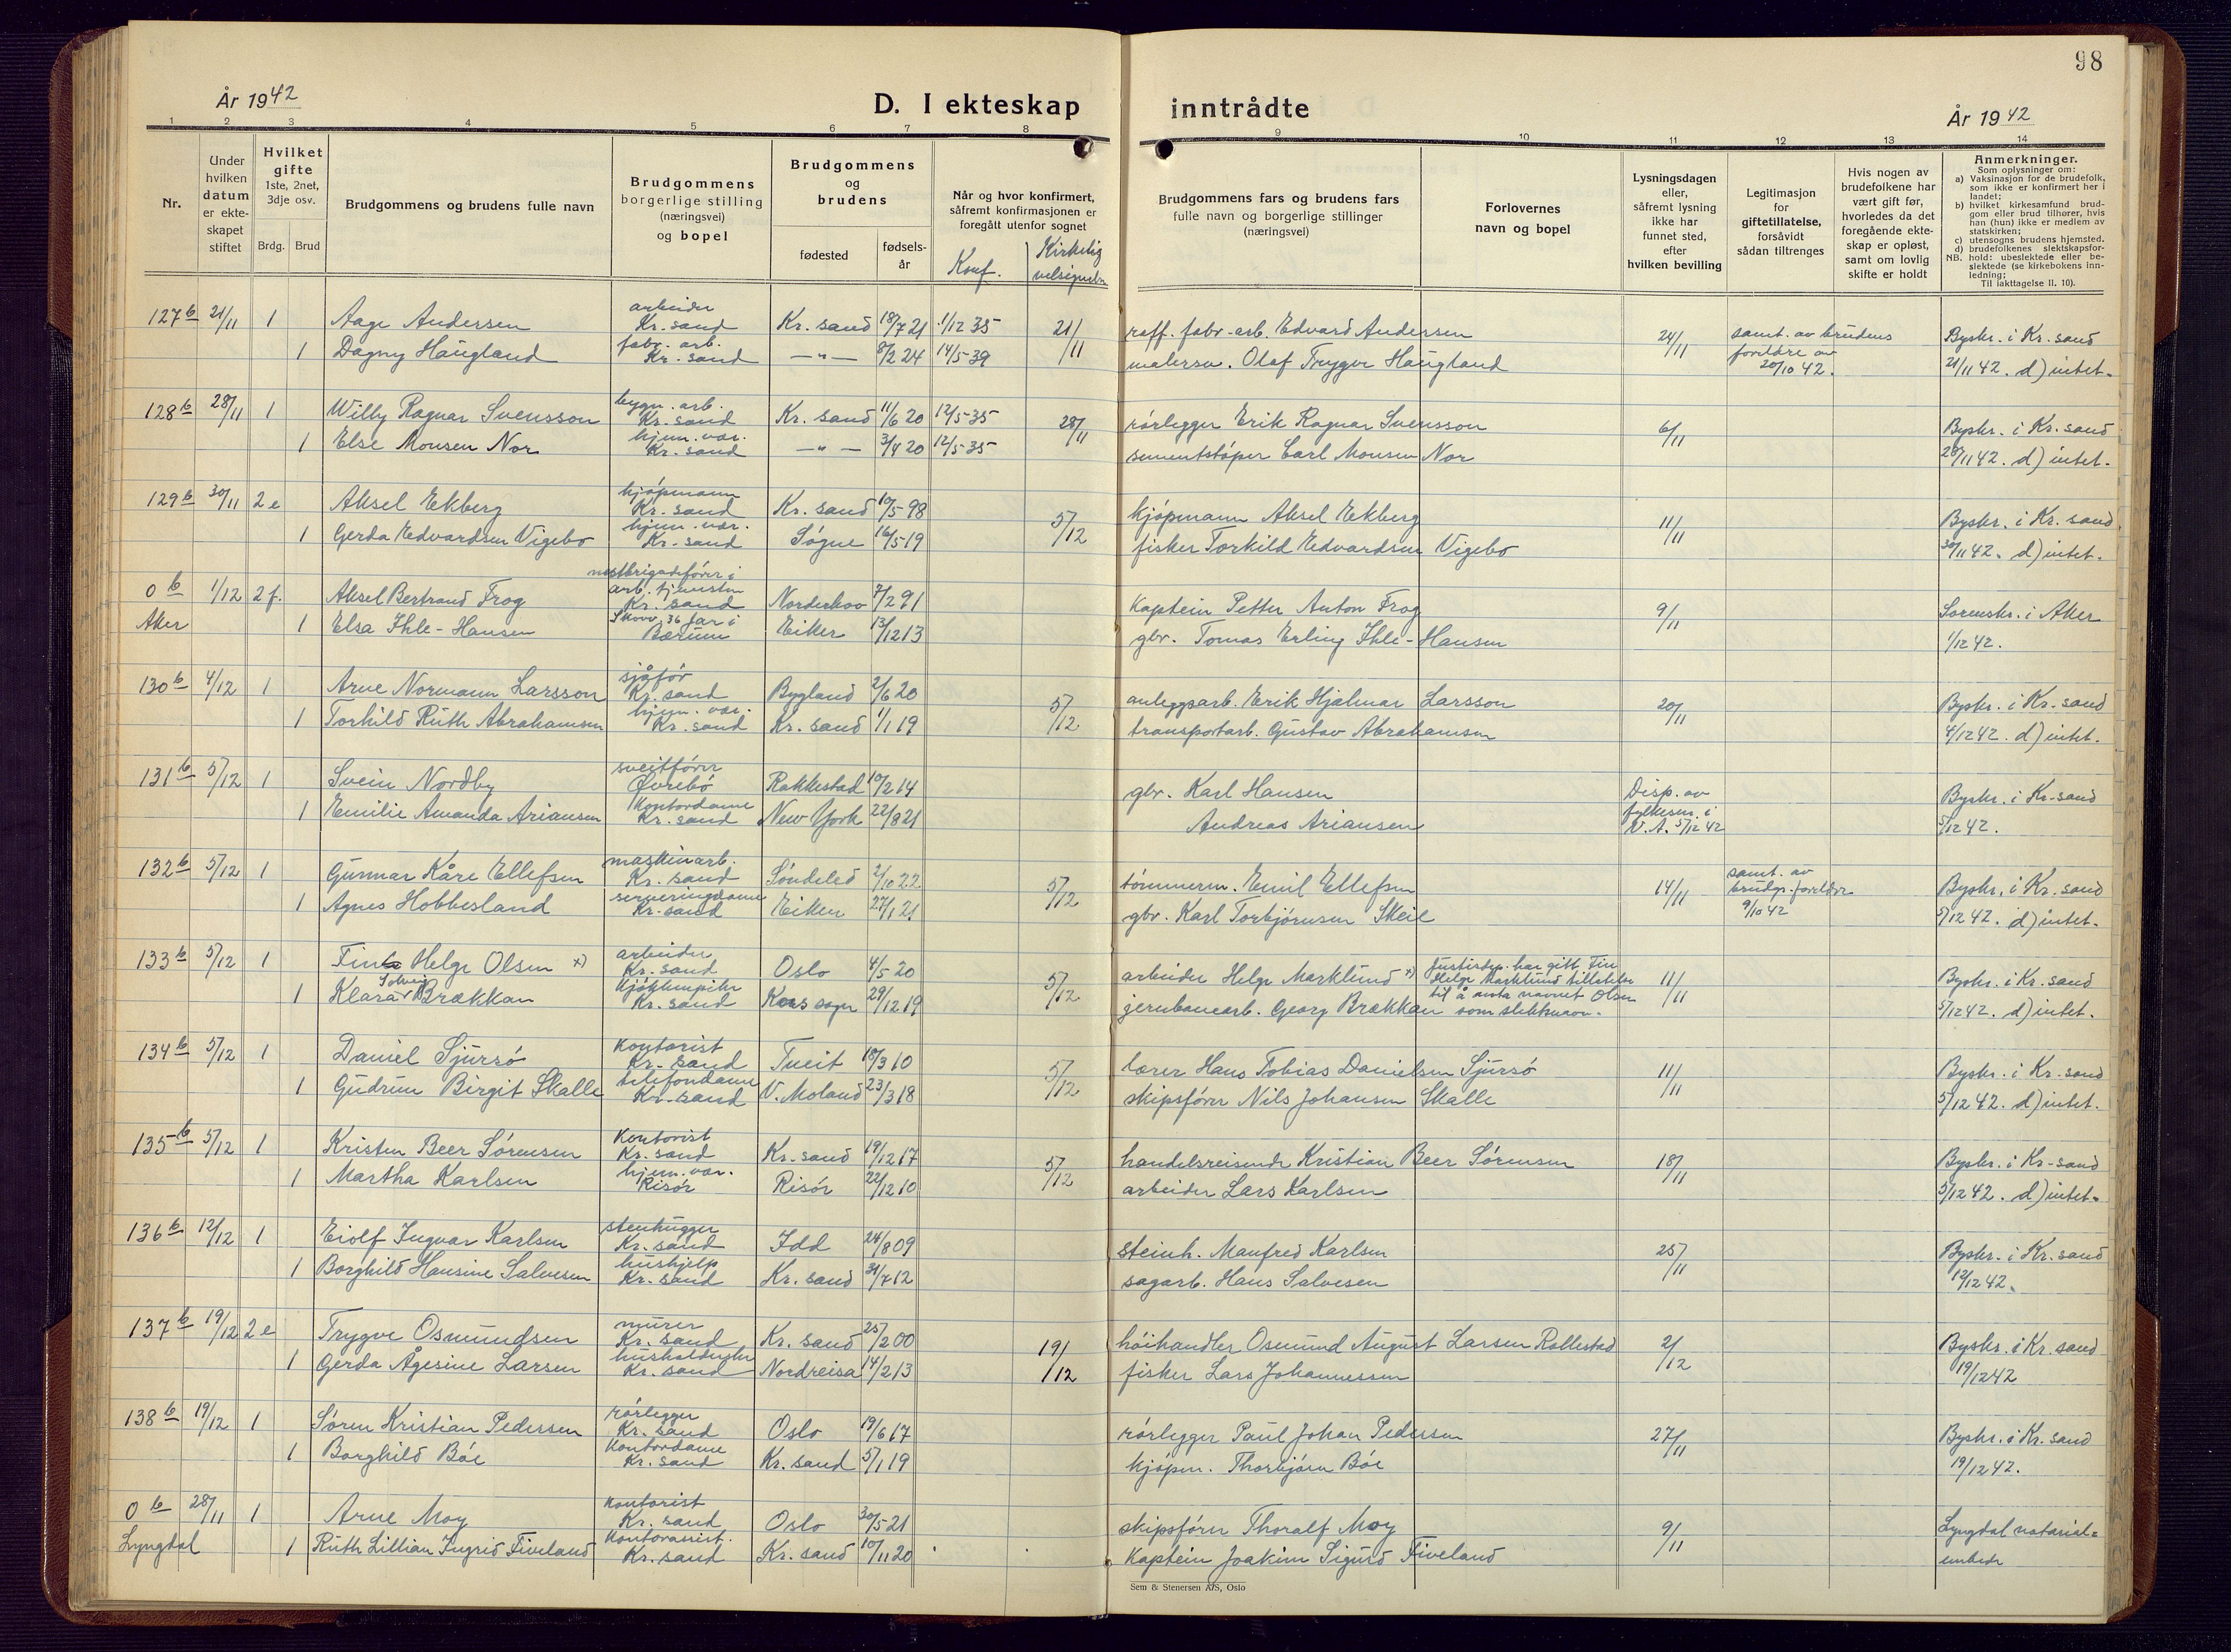 98
År 1942
D. I ekteskap inntrådte
År 1942
1 2 3 4 5 6 7 8 9 10 11 12 13 14
Nr.
Under hvilken datum er ekte-skapet stiftet
Hvilket gifte 1ste, 2net, 3dje osv.
Brdg. Brud
Brudgommens og brudens fulle navn
Brudgommens borgerlige stilling (næringsvei) og bopel
Brudgommens og brudens
fødested
fødsels-år
Når og hvor konfirmert, såfremt konfirmasjonen er foregått utenfor sognet
Konf. Kirkelig velsignelse
Brudgommens fars og brudens fars fulle navn og borgerlige stillinger (næringsvei)
Forlovernes navn og bopel
Lysningsdagen eller, såfremt lysning ikke har funnet sted, efter hvilken bevilling
Legitimasjon for giftetillatelse, forsåvidt sådan tiltrenges
Hvis nogen av brudefolkene har vært gift før, hvorledes da det foregående ekte-skap er opløst, samt om lovlig skifte er holdt
Anmerkninger.
Som oplysninger om:
a) Vaksinasjon for de brudefolk, som ikke er konfirmert her i landet;
b) hvilket kirkesamfund brud-gom eller brud tilhører, hvis han (hun) ikke er medlem av statskirken;
c) utensogns brudens hjemsted.
d) brudefolkenes slektskapsfor-hold: ubeslektede eller be-slektede (se kirkebokens inn-ledning;
NB.
Til iakttagelse II. 10).
127 b 21/11 1 Aage Andersen arbeider Kr. sand Kr. sand 18/7 21 1/12 35 21/11 raff. fabr. arb. Edvard Andersen 24/11 samt. av brudens foreldre av 20/10 42. Byskr. i Kr. sand
1 Dagny Haugland fabr. arb. Kr. sand —"— 8/2 24 14/5 39 malersv. Olaf Trygve Haugland 21/11 42. d) intet.
128 b 28/11 1 Willy Ragnar Svensson bygn. arb. Kr. sand Kr. sand 11/6 20 12/5 35 28/11 rørlegger Erik Ragnar Svensson 6/11 Byskr. i Kr. sand
1 Else Monsen Nor hjem. vær. Kr. sand —"— 3/4 20 12/5 35 sementstøper Carl Monsen Nor 28/11 42. d) intet.
129 b 30/11 2 e Aksel Ekberg kjøpmann Kr. sand Kr. sand 10/5 98 5/12 kjøpmann Aksel Ekberg 11/11 Byskr. i Kr. sand
1 Gerda Edvardsen Vigebo hjem. vær. Kr. sand Søgne 16/5 19 fisker Torkild Edvardsen Vigebo 30/11 42. d) intet.
0 b 1/12 2 f. Aksel Bertrand Frog nestbrigadefører i arb. tjenesten Kr. sand Norderhov 7/2 91 Kaptein Petter Anton Frog 9/11 Sorenskr. i Aker
Aker 1 Elsa Ihle-Hansen Bærum Eiker 13/12 13 gbr. Tomas Erling Ihle-Hansen 1/12 42.
130 b 4/12 1 Arne Normann Larsson sjåfør Kr. sand Bygland 2/6 20 5/12 anleggsarb. Erik Hjalmar Larsson 20/11 Byskr. i Kr. sand
1 Torhild Ruth Abrahamsen hjem. vær. Kr. sand Kr. sand 1/1 19 transportarb. Gustav Abrahamsen 4/12 42. d) intet.
131 b 5/12 1 Svein Nordby sveitfører Øvrebø Rakkestad 10/2 14 gbr. Karl Hansen Disp. av fylkesm. i V. A. 5/12 42 Byskr. i Kr. sand
1 Emilie Amanda Ariansen Kontordame Kr. sand New York 22/8 21 Andreas Ariansen 5/12 42.
132 b 5/12 1 Gunnar Kåre Ellefsen maskinarb. Kr. sand Søndeled 2/10 22 5/12 tømmerm. Emil Ellefsen 14/11 samt. av brudg. foreldre 9/10 42 Byskr. i Kr. sand
1 Agnes Hobbesland serveringsdame Kr. sand Eiken 27/1 21 gbr. Karl Torbjørnsen Skeie 5/12 42. d) intet.
133 b 5/12 1 Finn Helge Olsen x) arbeider Kr. sand Oslo 4/5 20 5/12 arbeider Helge Marklund x) Justisdep. har gitt Fin Helge Marklund tillatelse til å anta navnet Olsen som slektsnavn. 11/11 Byskr. i Kr. sand
1 Klara Solveig Brækkan kjøkkenpike Kr. sand Kors sogn 29/12 19 jernbanearb. Georg Brækkan 5/12 42. d) intet.
134 b 5/12 1 Daniel Sjursø kontorist Kr. sand Tveit 18/3 10 5/12 lærer Hans Tobias Danielsen Sjursø 11/11 Byskr. i Kr. sand
1 Gudrun Birgit Skalle telefondame Kr. sand V. Moland 23/3 18 skipsfører Nils Johansen Skalle 5/12 42. d) intet.
135 b 5/12 1 Kristen Beer Sørensen Kontorist Kr. sand Kr. sand 19/12 17 5/12 handelsreisende Kristian Beer Sørensen 18/11 Byskr. i Kr. sand
1 Martha Karlsen hjem. vær. Risør Risør 22/12 10 arbeider Lars Karlsen 5/12 42. d) intet.
136 b 12/12 1 Eiolf Ingvar Karlsen stenhugger Kr. sand Idd 24/8 09 steinh. Manfred Karlsen 25/11 Byskr. i Kr. sand
1 Borghild Hansine Salvesen hushjelp Kr. sand Kr. sand 31/7 12 sagarb. Hans Salvesen 12/12 42.
137 b 19/12 2 e Trygve Osmundsen murer Kr. sand Kr. sand 25/2 00 19/12 høihandler Osmund August Larsen Rollestad 2/12 Byskr. i Kr. sand
1 Gerda Ågesine Larsen Kr. sand Nordreisa 14/2 13 fisker Lars Johannessen 19/12 42
138 b 19/12 1 Søren Kristian Pedersen rørlegger Kr. sand Oslo 19/6 17 rørlegger Paul Johan Pedersen 27/11 Byskr. i Kr. sand
1 Borghild Bøe Kontordame Kr. sand Kr. sand 5/1 19 kjøpm. Thorbjørn Bøe 19/12 42.
0 b 28/11 1 Arne Moy kontorist Kr. sand Oslo 30/5 21 skipsfører Thoralf Moy 9/11 Lyngdal notarial=
Lyngdal 1 Ruth Lillian Ingrid Fiveland Kontorassist. Kr. sand Kr. sand 10/11 20 Kaptein Joakim Sigurd Fiveland embede
Sem & Stenersen A/S, Oslo